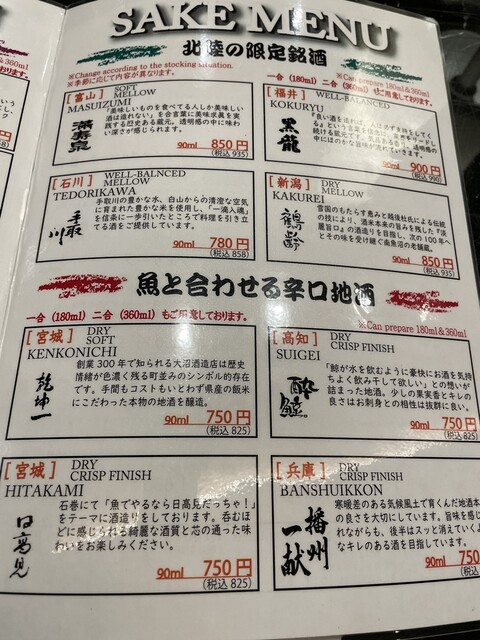 SAKE MENU
北陸の限定銘酒
※Change according to the stocking situation.
※季節に応じて内容が異なります。
※Can prepare 180ml&360ml
一合(180ml)二合(360ml)もご用意しております。
[富山] SOFT
MELLOW
MASUIZUMI
満寿泉
「美味しいものを食べてる人しか美味しい
酒は造れない」を合言葉に美味求真を実
践する歴史ある蔵元。透明感の中に味わ
い深さが感じられます。
90ml 850円
(税込 935)
[福井] WELL-BALANCED
KOKURYU
黒龍
90ml 900円
(税込 990)
[石川] WELL-BALNCED
MELLOW
TEDORIKAWA
手取川
手取川の豊かな水、白山からの清澄な空気
に育まれた豊かな米を使用し、「一滴入魂」
を信条に一歩引いたところで料理を引き立
てる酒をご提供しています。
90ml 780円
(税込 858)
[新潟] DRY
MELLOW
KAKUREI
鶴齢
雪国のもたらす恵みと越後杜氏による伝統
の技により、酒米本来の旨みを残した『淡
麗旨口』の酒造りを目指し、次の100年へ
とその味を受け継ぐ南魚沼の老舗蔵。
90ml 850円
(税込 935)
魚と合わせる辛口地酒
一合(180ml)二合(360ml)もご用意しております。
※Can prepare 180ml&360ml
[宮城] DRY
SOFT
KENKONICHI
乾坤一
創業300年で知られる大沼酒造店は歴史
情緒が色濃く残る町並みのシンボル的存在
です。手間もコストもいとわず県産の飯米
にこだわった本物の地酒を醸造。
90ml 750円
(税込 825)
[高知] DRY
CRISP FINISH
SUIGEI
酔鯨
「鯨が水を飲むように豪快にお酒を気持
ちよく飲み干して欲しい」との想いが
詰まった地酒。少しの果実香とキレの
良さはお刺身との相性は抜群に良い。
90ml 750円
(税込 825)
[宮城] DRY
CRISP FINISH
HITAKAMI
日高見
石巻にて「魚でやるなら日高見だっちゃ!」
をテーマに酒造りをしております。呑むほ
どに感じられる綺麗な酒質と芯の通った味
わいをお楽しみください。
90ml 750円
(税込 825)
[兵庫] DRY
CRISP FINISH
BANSHUIKKON
播州一献
寒暖差のある気候風土で育くんだ地酒本
の良さを大切にしています。旨味を感じ
れながらも、後半はスッと消えていくよ
なキレのある酒を目指しています。
90ml 750
(税込 825